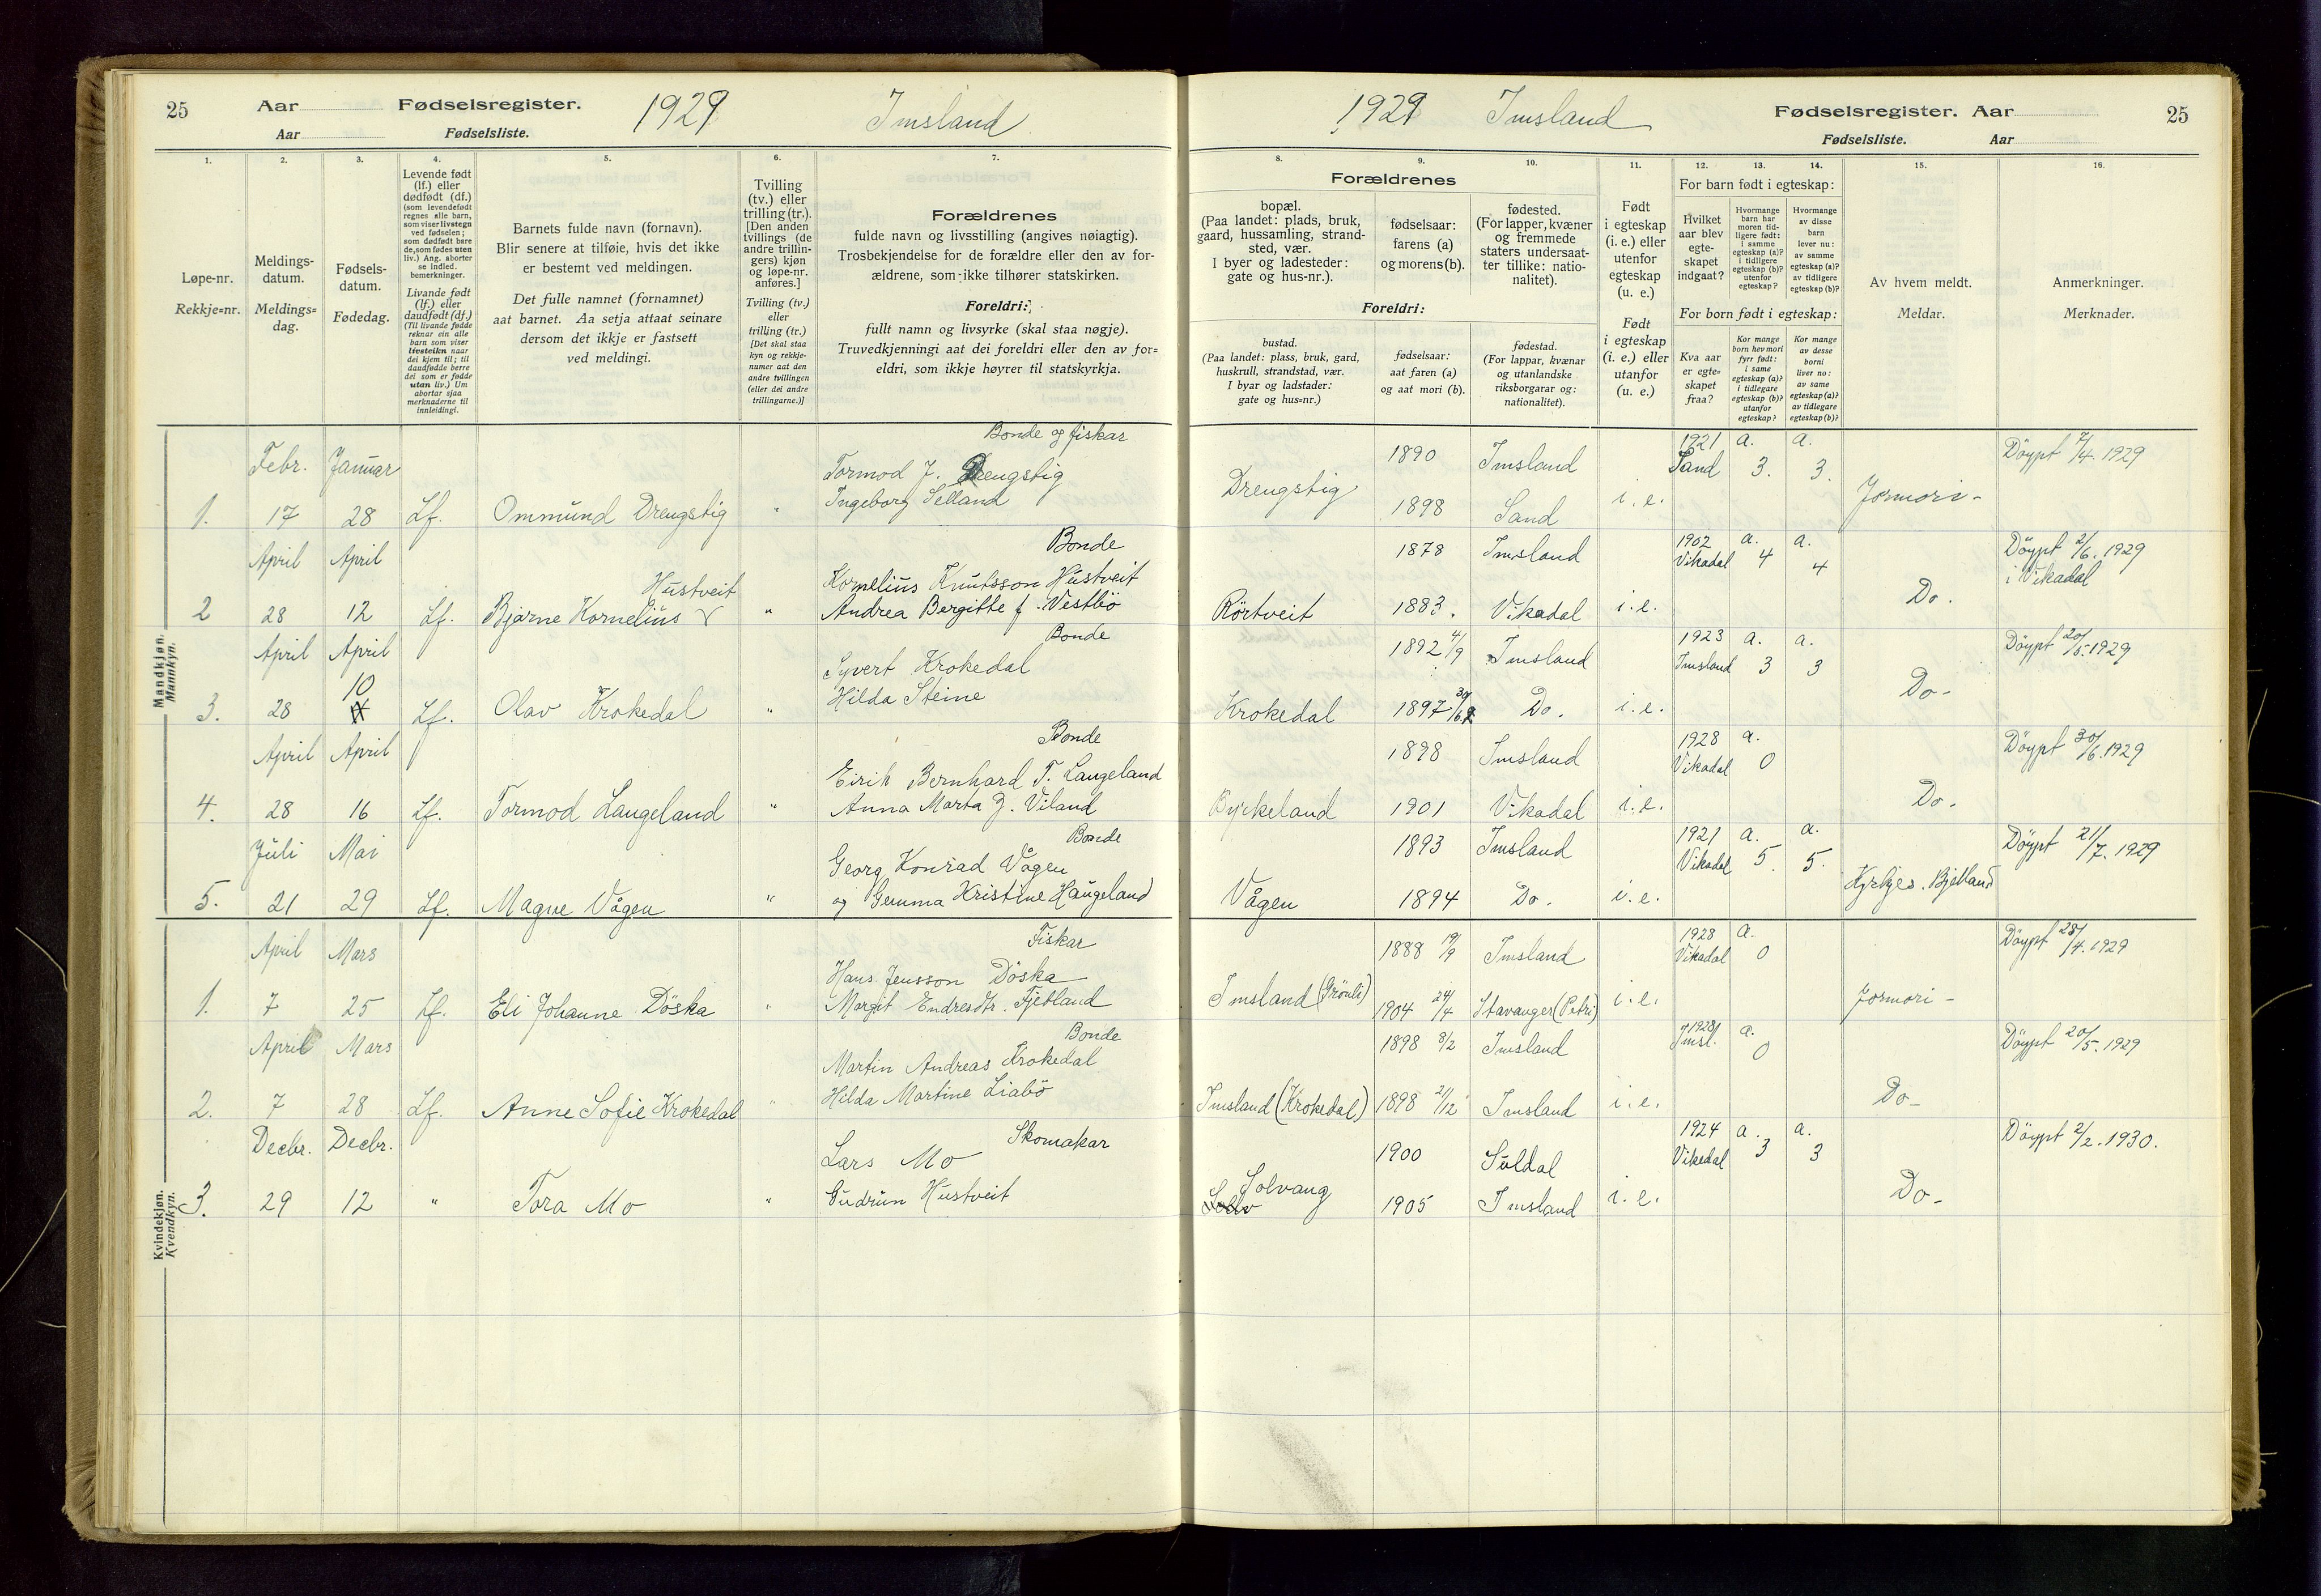 25 Aar Fødselsregister. 1929 Imsland
Aar Fødselsliste.
1. 2. 3. 4. 5. 6. 7.
Løpe-nr.
Rekkje=nr.
Meldings-
datum.
Meldings=
dag.
Fødsels-
datum.
Fødedag.
Levende født
(lf.) eller
dødfødt (df.)
(som levendefødt
regnes alle barn,
som viser livstegn
ved fødselen;
som dødfødt bare
de, som fødes uten
liv.) Ang. aborter
se indled.
bemerkninger.
Livande født
(lf.) eller
daudfødt (df.)
(Til livande fødde
reknar ein alle
barn som viser
livsteikn naar
dei kjem til; til
daudfødde berre
dei som er fødde
utan liv.) Um
abortar sjaa
merknaderne til
innleidingi.
Barnets fulde navn (fornavn).
Blir senere at tilføie, hvis det ikke
er bestemt ved meldingen.
Det fulle namnet (fornamnet)
aat barnet. Aa setja attaat seinare
dersom det ikkje er fastsett
ved meldingi.
Tvilling
(tv.) eller
trilling (tr.).
[Den anden
tvillings (de
andre trillin-
gers) kjøn
og løpe-nr.
anføres.]
Tvilling (tv.)
eller
trilling (tr.)
[Det skal staa
kyn og rekkje-
numer aat den
andre tvillingen
(eller dei andre
trillingarne.)]
Forældrenes
fulde navn og livsstilling (angives nøiagtig).
Trosbekjendelse for de forældre eller den av for-
ældrene, som ikke tilhører statskirken.
Foreldri:
fullt namn og livsyrke (skal staa nøgje).
Truvedkjenningi aat dei foreldri eller den av for=
eldri, som ikkje høyrer til statskyrkja.
Mandkjøn.
Mannkyn.
Bonde og fiskar
Febr. Januar
Tormod J. Drengstig
Ingeborg Selland
1. 17 28 Lf. Ommund Drengstig "
Bonde
April April
Hustveit
Kornelius Knutsson Hustveit
2 28 12 Lf. Bjarne Kornelius " Andrea Bergitte f. Vestbö
April April Bonde
Syvert Krokedal
10
Hilda Steine
3. 28 Lf. Olav Krokedal "
April April Bonde
Eirik Bernhard T. Langeland
4. 28 16 Lf. Tormod Langeland " Anna Marta J. Viland
Juli Mai Bonde
Georg Konrad Vågen
5. 21 29 Lf. Magne Vågen " og Gemma Kristine Haugeland
Kvindekjøn.
Kvendkyn.
April Mars Fiskar
Hans Jensson Döska
1. 7 25 Lf. Eli Johanne Döska " Margit Endresdtr. Fjetland
April Mars Bonde
Martin Andreas Krokedal
2. 7 28 Lf. Anne Sofie Krokedal " Hilda Martine Liabö
Decbr. Decbr. Skomakar
Lars Mo
3. 29 12 " Tora Mo " Gudrun Hustveit
1929 Imsland Fødselsregister. Aar 25
Fødselsliste. Aar
8. 9. 10. 11. 12. 13. 14. 15. 16.
Forældrenes
bopæl.
(Paa landet: plads, bruk,
gaard, hussamling, strand-
sted, vær.
I byer og ladesteder:
gate og hus-nr.).
fødselsaar:
farens (a)
og morens (b).
fødested.
(For lapper, kvæner
og fremmede
staters undersaat-
ter tillike: natio-
nalitet).
Foreldri:
bustad.
(Paa landet: plass, bruk, gard,
huskrull, strandstad, vær.
I byar og ladstader:
gate og hus=nr.)
fødselsaar:
aat faren (a)
og aat mori (b).
fødestad.
(For lappar, kvænar
og utanlandske
riksborgarar og:
nationalitet).
Født
i egteskap
(i. e.) eller
utenfor
egteskap
(u. e.)
Født
i egteskap
(i. e.) eller
utanfor
(u. e.)
For barn født i egteskap:
Hvilket
aar blev
egte-
skapet
indgaat?
Hvormange
barn har
moren tid-
ligere født:
i samme
egteskap (a)?
i tidligere
egteskap (b)?
utenfor
egteskap?
Hvormange
av disse
barn
lever nu:
av samme
egteskap (a)?
av tidligere
egteskap (b)?
For born født i egteskap:
Kva aar
er egte=
skapet
fraa?
Kor mange
born hev mori
fyrr født:
i same
egteskap (a)?
i tidlegare
egteskap (b)?
utanfor
egteskap?
Kor mange
av desse
borni
liver no:
av same
egteskap (a)?
av tidlegare
egteskap (b)?
Av hvem meldt.
Meldar.
Anmerkninger.
Merknader.
1890 Imsland 1921 a. a. Döypt 7/4. 1929
Drengstig Sand 3. 3.
1898 Sand i. e. Jormori-
1878 Imsland 1902 a. a. Döypt 2/6. 1929
Vikadal 4 4 i Vikadal
Rörtveit 1883. Vikadal i. e. Do.
1892 4/9 Imsland 1923 a. a. Döypt 20/5. 1929
Imsland 3 3
Krokedal 1897 Do. i. e. Do-
1898 Imsland 1928 a. Döypt 30/6. 1929
Vikadal 0
Byrkeland 1901 Vikadal i. e. Do.
1893 Imsland 1921 a. a. Döypt 21/7. 1929
Vikadal 5 5.
Vågen 1894 Do. i. e. Kyrkjes. Bjelland
1888 19/9 Imsland 1928 a. Döypt 28/4. 1929
Vikadal 0
Imsland (Grönli) 1904 24/4 Stavanger (Petri) i. e. Jormori-
1898 8/2 Imsland 1928 a. Döypt 20/5. 1929
Imsl. 0
Imsland (Krokedal) 1898 21/12 Imsland i. e. Do-
1900 Suldal 1924 a. a. Döypt 2/2. 1930.
Vikedal 3 3
Solvang
1905 Imsland i. e. Do-